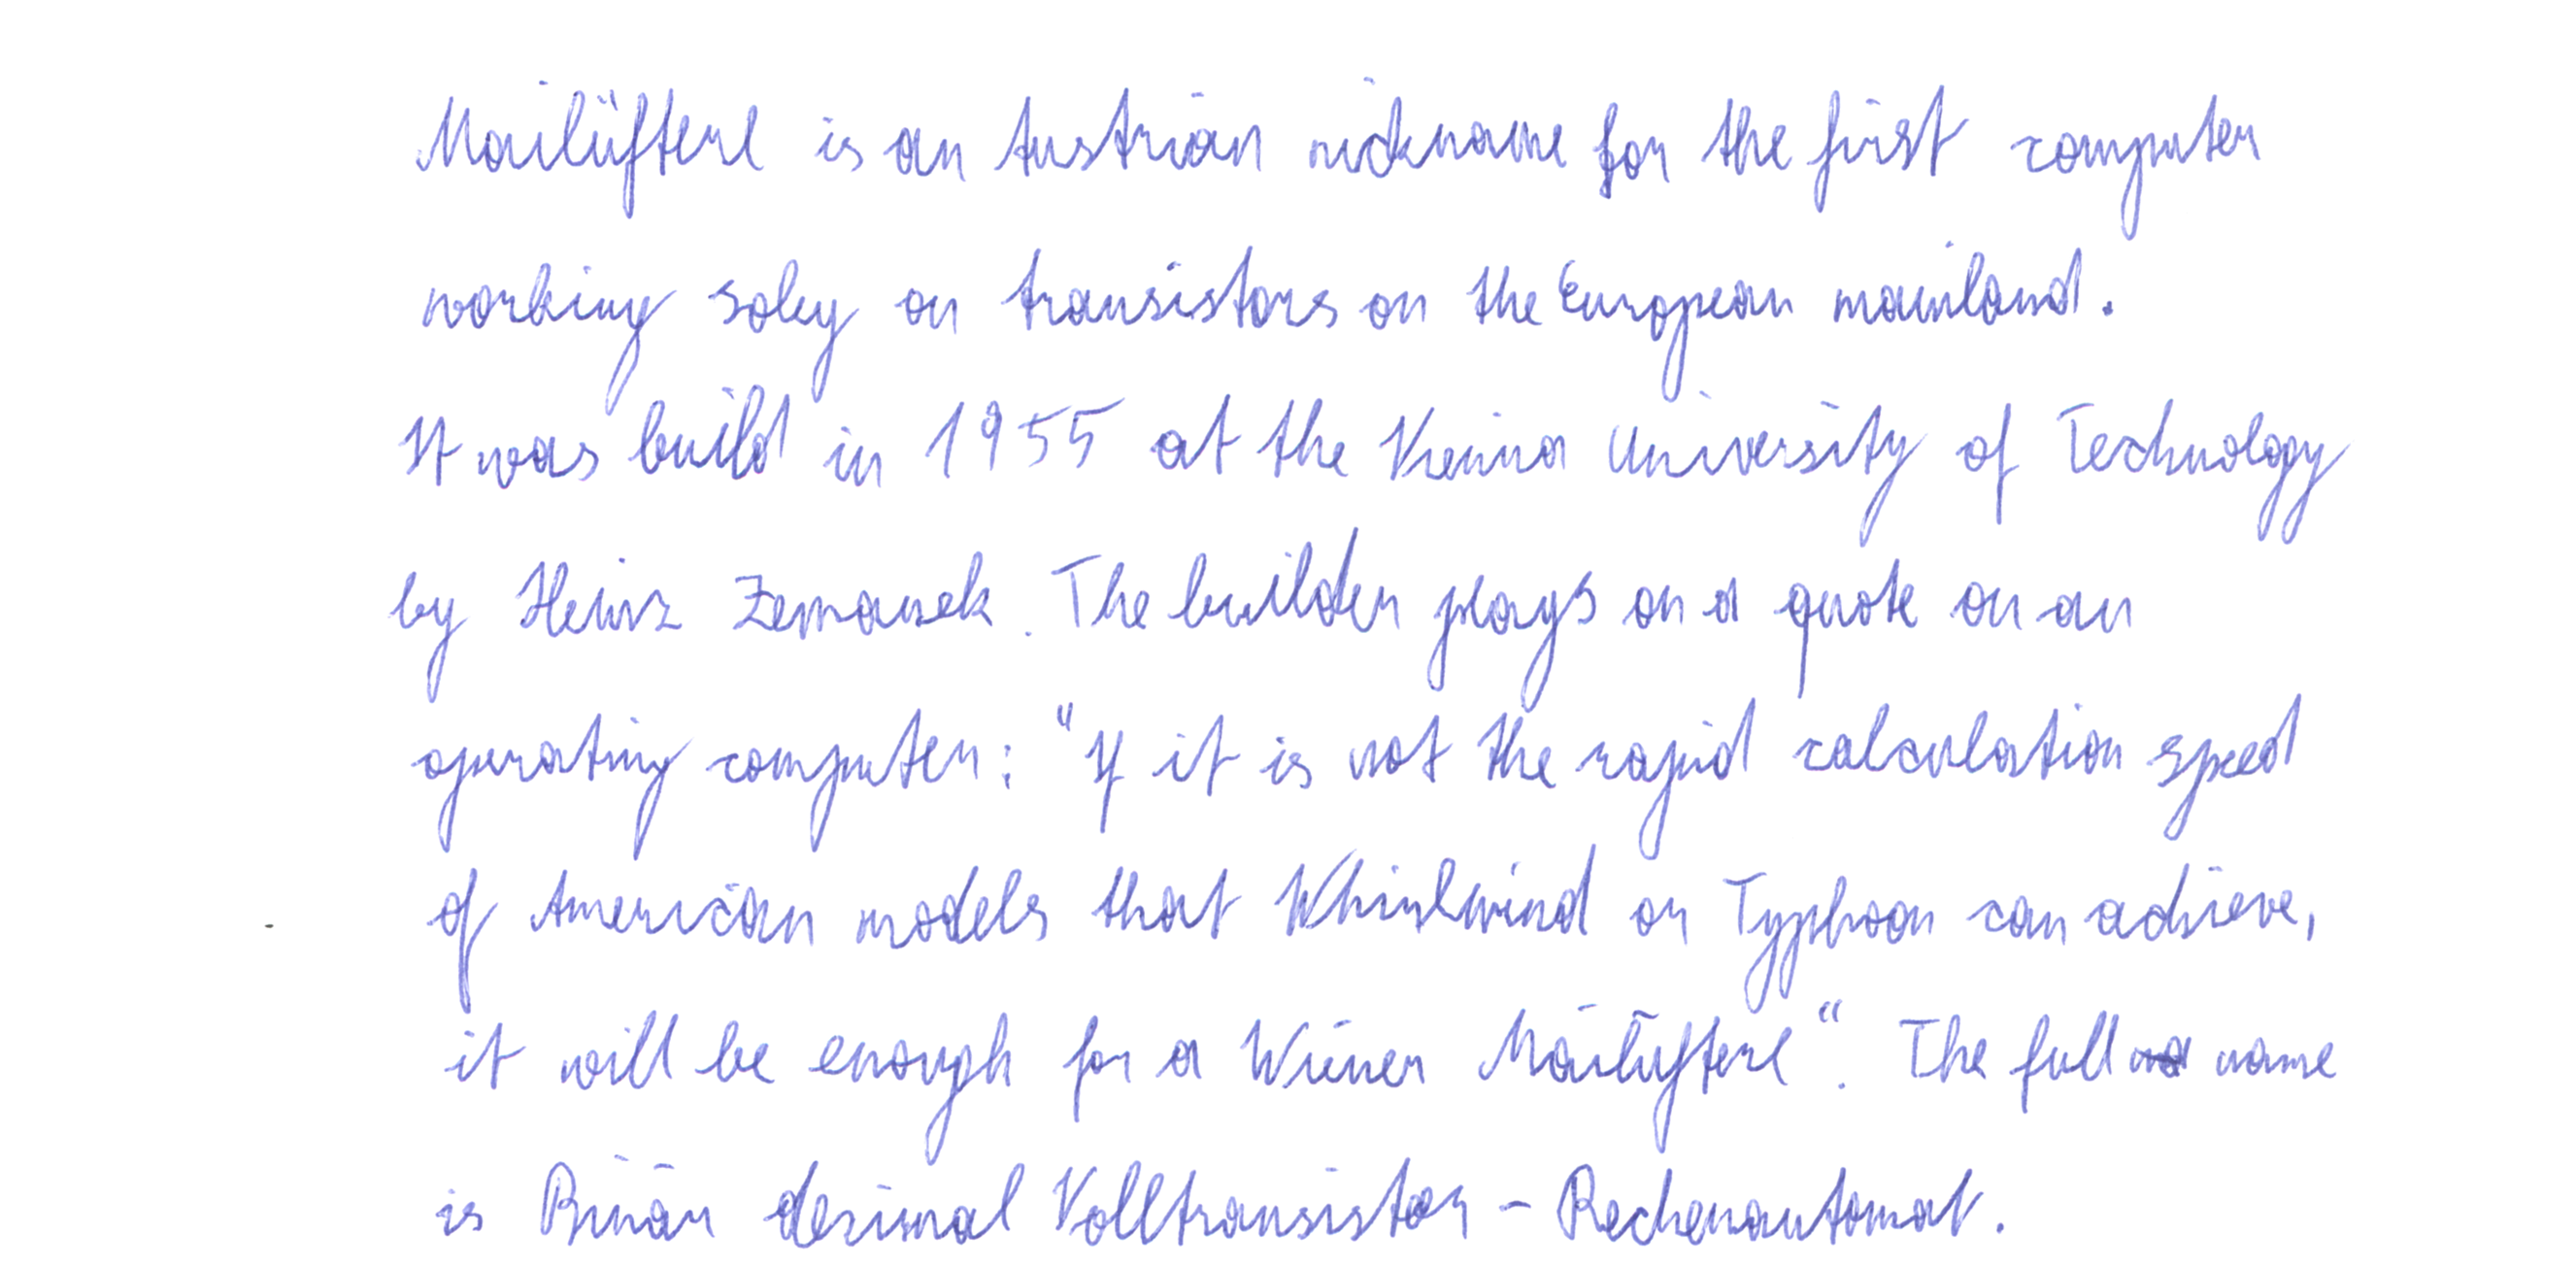 Mailüfterl is an Austrian nickname for the first computer
working soley on transistors on the European mainland.
It was build in 1955 at the Vienna University of Technology
by Heinz Zemanek. The builder plays on a quote on an
operating computer: "If it is not the rapid calculation speed
of American models that Whirlwind or Typhoon can achieve,
it will be enough for a Wiener Mailüfterl". The full name
is Binär dezimal Volltransistor-Rechenautomat.